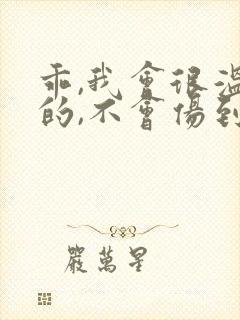 乖,我會很溫
的,不會傷到
嚴萬星